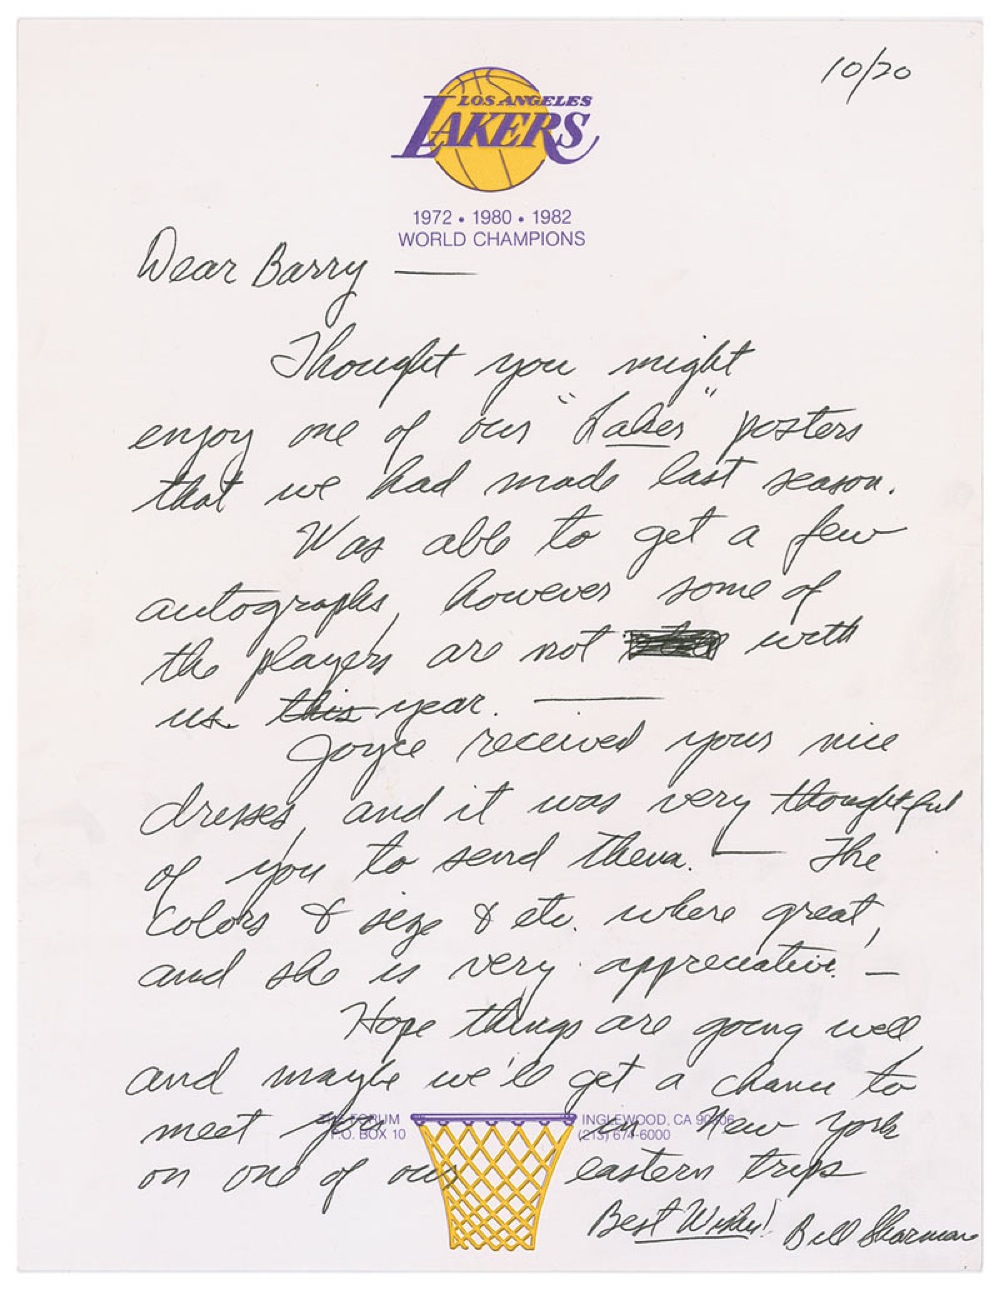 10/20
LOS ANGELES
LAKERS
1972 • 1980 • 1982
WORLD CHAMPIONS
Dear Barry —
Thought you might
enjoy one of our "Laker" posters
that we had made last season.
Was able to get a few
autographs, however some of
the players are not with
us this year. —
Joyce received your nice
dresses, and it was very thoughtful
of you to send them. — The
colors & size & etc. where great,
and she is very appreciative. —
Hope things are going well,
and maybe we'll get a chance to
meet you in New York
on one of our eastern trips
THE FORUM
P.O. BOX 10
INGLEWOOD, CA 90306
(213) 674-6000
Best Wishes! Bill Sharman